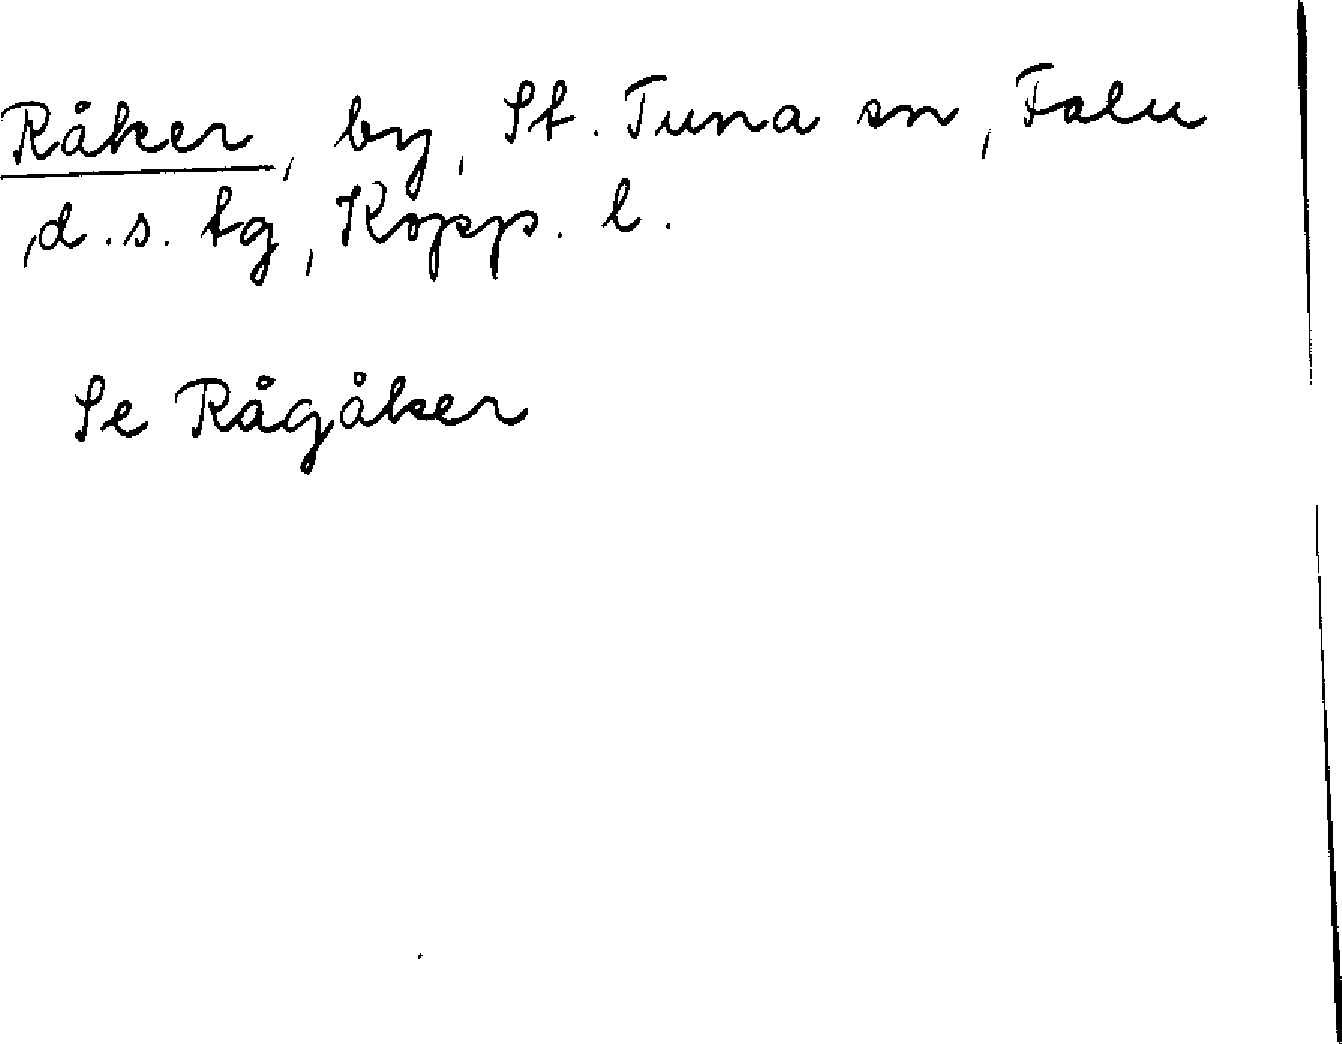 Råker, by, St. Tuna sn, Falu
d.s. tg, Kopp. l.
Se Rågåker